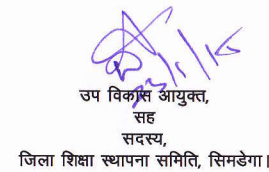 उप विकास आयुक्त,
सह
सदस्य,
जिला शिक्षा स्थापना समिति, सिमडेगा।